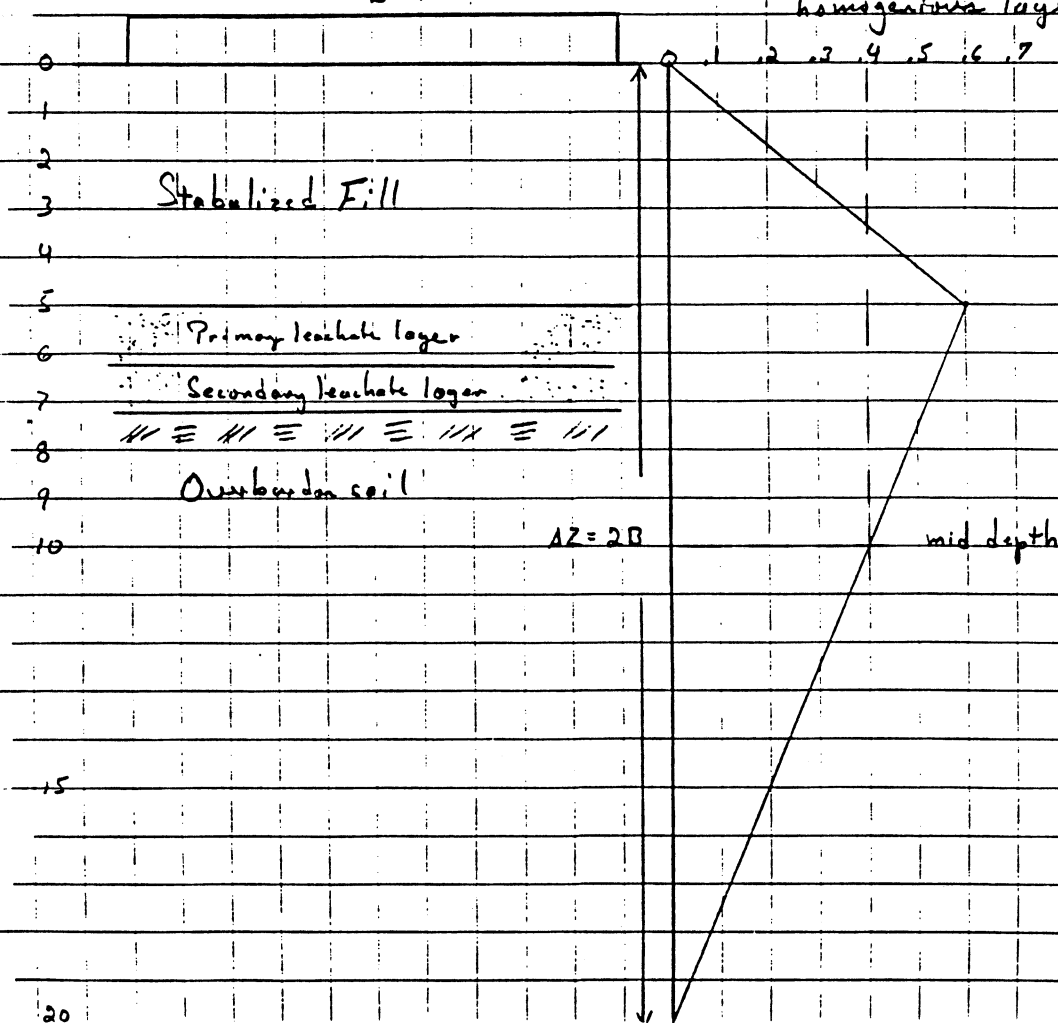 homogenious lay
0 0 .1 .2 .3 .4 .5 .6 .7
1
2
Stabalized Fill
3
4
5
Primary leachate layer
6
Secondary leachate layer
7
8
Overburden soil
9
10 ΔZ = 2B mid depth
15
20